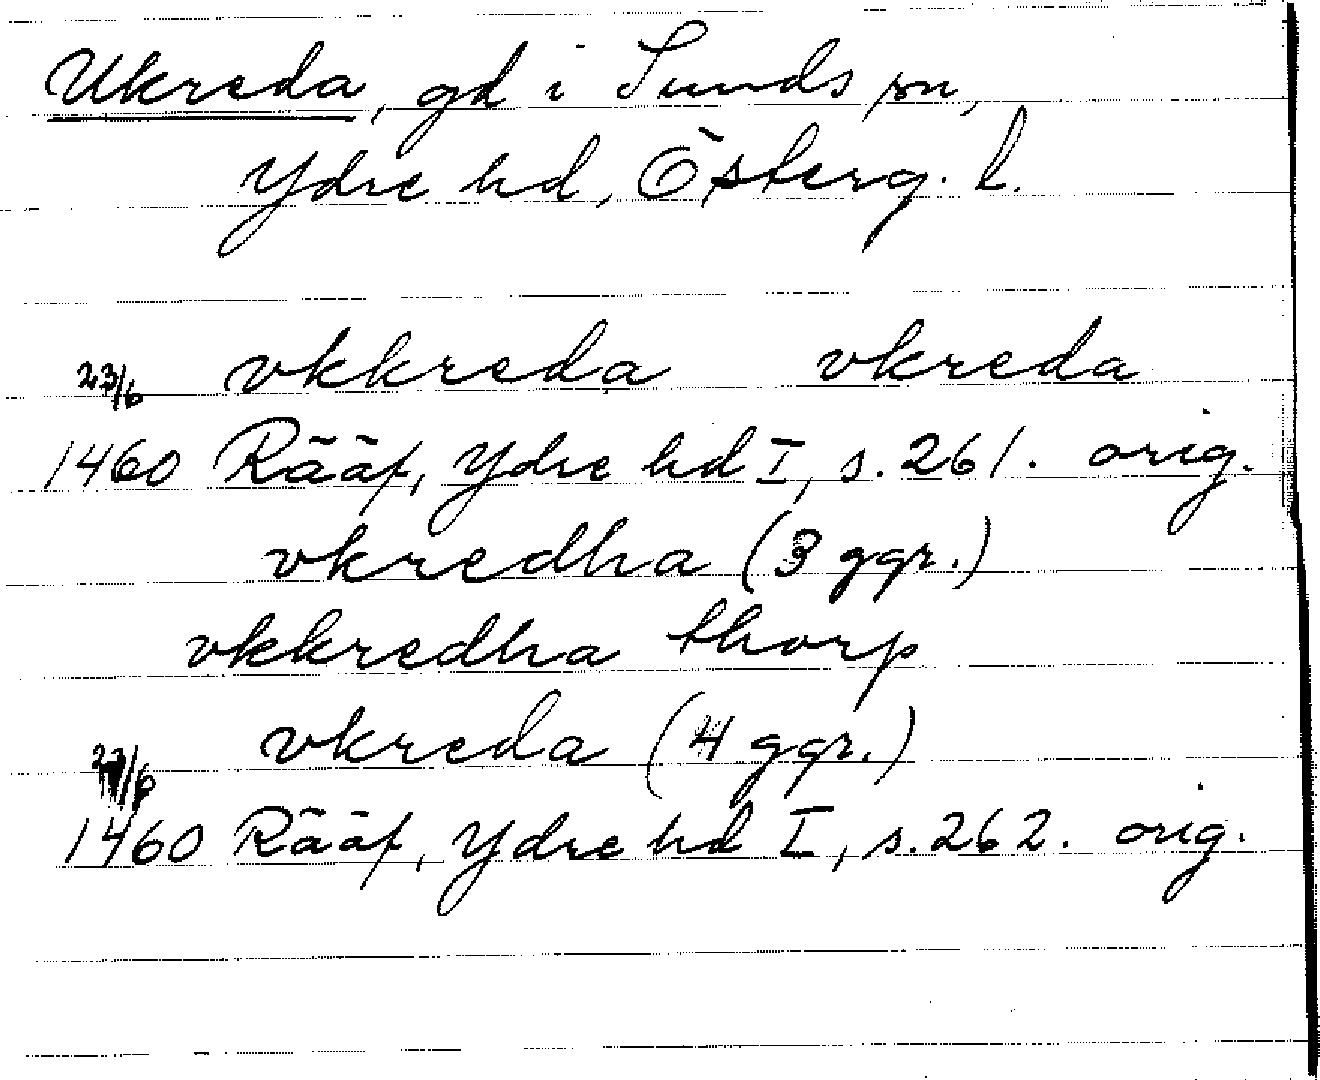 Ukreda, gd i Sunds sn,
Ydre hd, Österg. l.
23/6 vkkreda vkreda
1460 Rääf, Ydre hd I, s. 261. orig.
vkredha (3 ggr.)
vkkredha thorp
vkreda (4 ggr.)
/6
1460 Rääf, Ydre hd I, s. 262. orig.